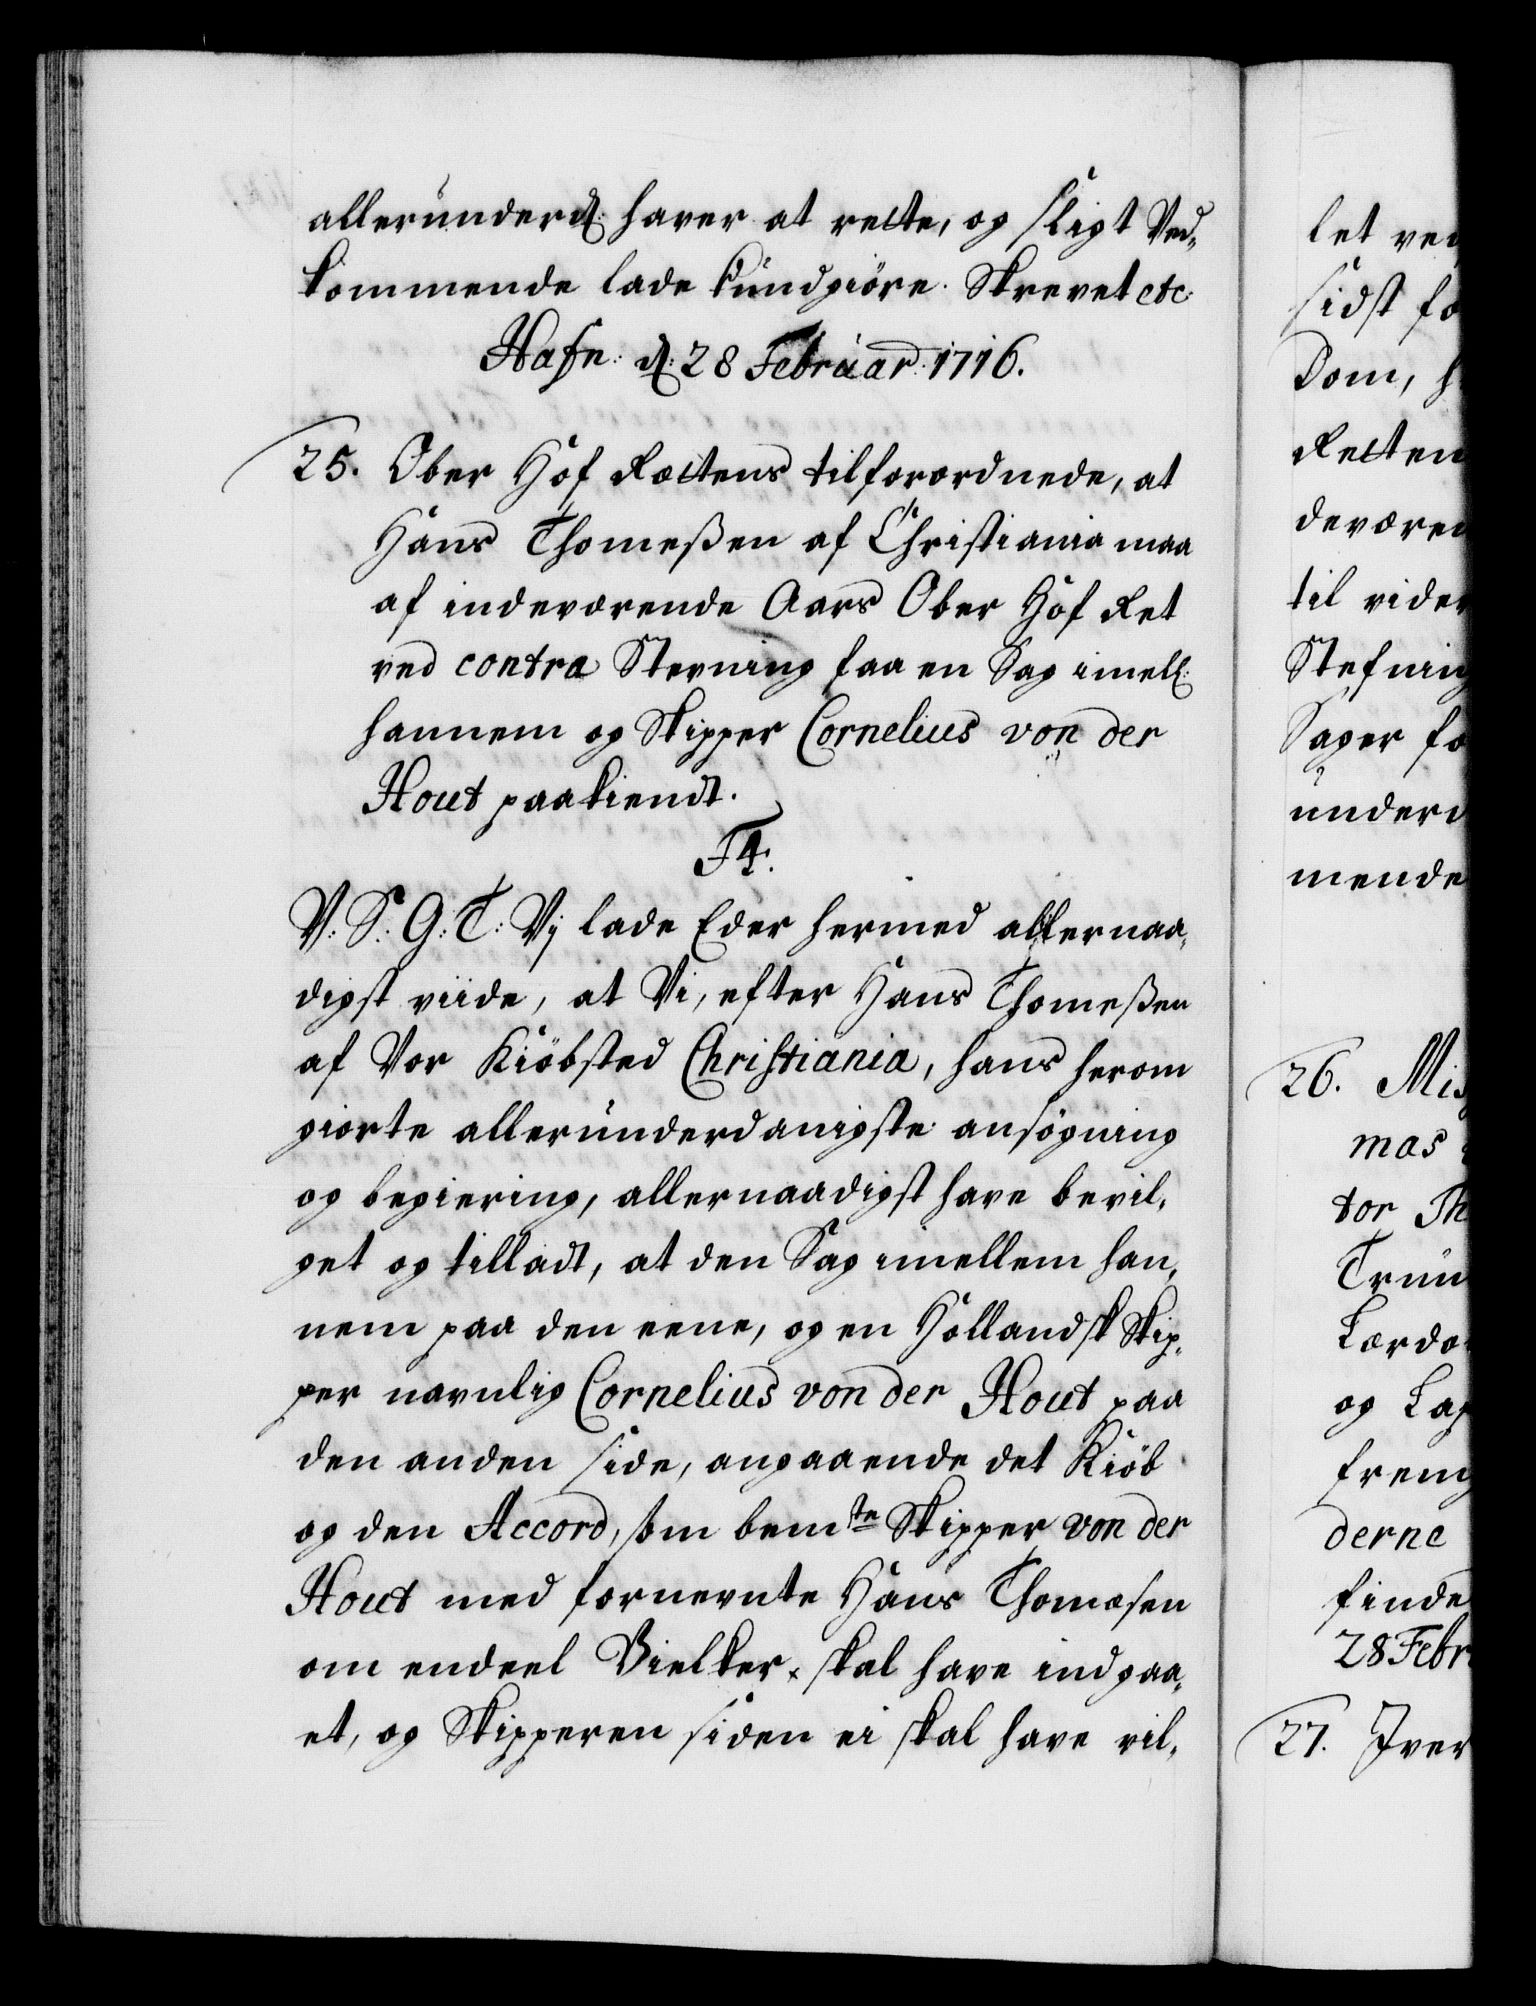 allerunderd: haver at rette, og sligt Ved-
kommende lade kundgiöre. Skrevet etc
Hafn: d: 28 Februar: 1716.
25. Ober Hof Rettens tilforordnede, at
Hans Thomeßen af Christiania maa
af indeværende Aars Ober Hof Ret
ved contra Stevning faa en Sag imell:
hannem og Skipper Cornelius von der
Hout paakiendt.
F4.
V: S: G: T: Vj lade Eder hermed allernaa-
digst viide, at Vi, efter Hans Thomeßen
af Vor Kiöbsted Christiania, hans herom
giorte allerunderdanigste ansögning
og begiering, allernaadigst have bevil-
get og tilladt, at den Sag imellem han-
nem paa den eene, og en Hollandsk Skip-
per navnlig Cornelius von der Hout paa
den anden side, angaaende det Kiöb
og den Accord, som bemte Skipper von der
Hout med fornevnte Hans Thomæsen
om endeel Bielker skal have indgaa-
et, og Skipperen siden ei skal have vil-
let ved
sidst fo
Dom, h
Retten
deværen
til vider
Stefning
Sager fo
underd
mende
26. Mis
mas
tor Th
Trun
Lærda
og Lag
freng
derne
finde
28 Febr
27. Iver